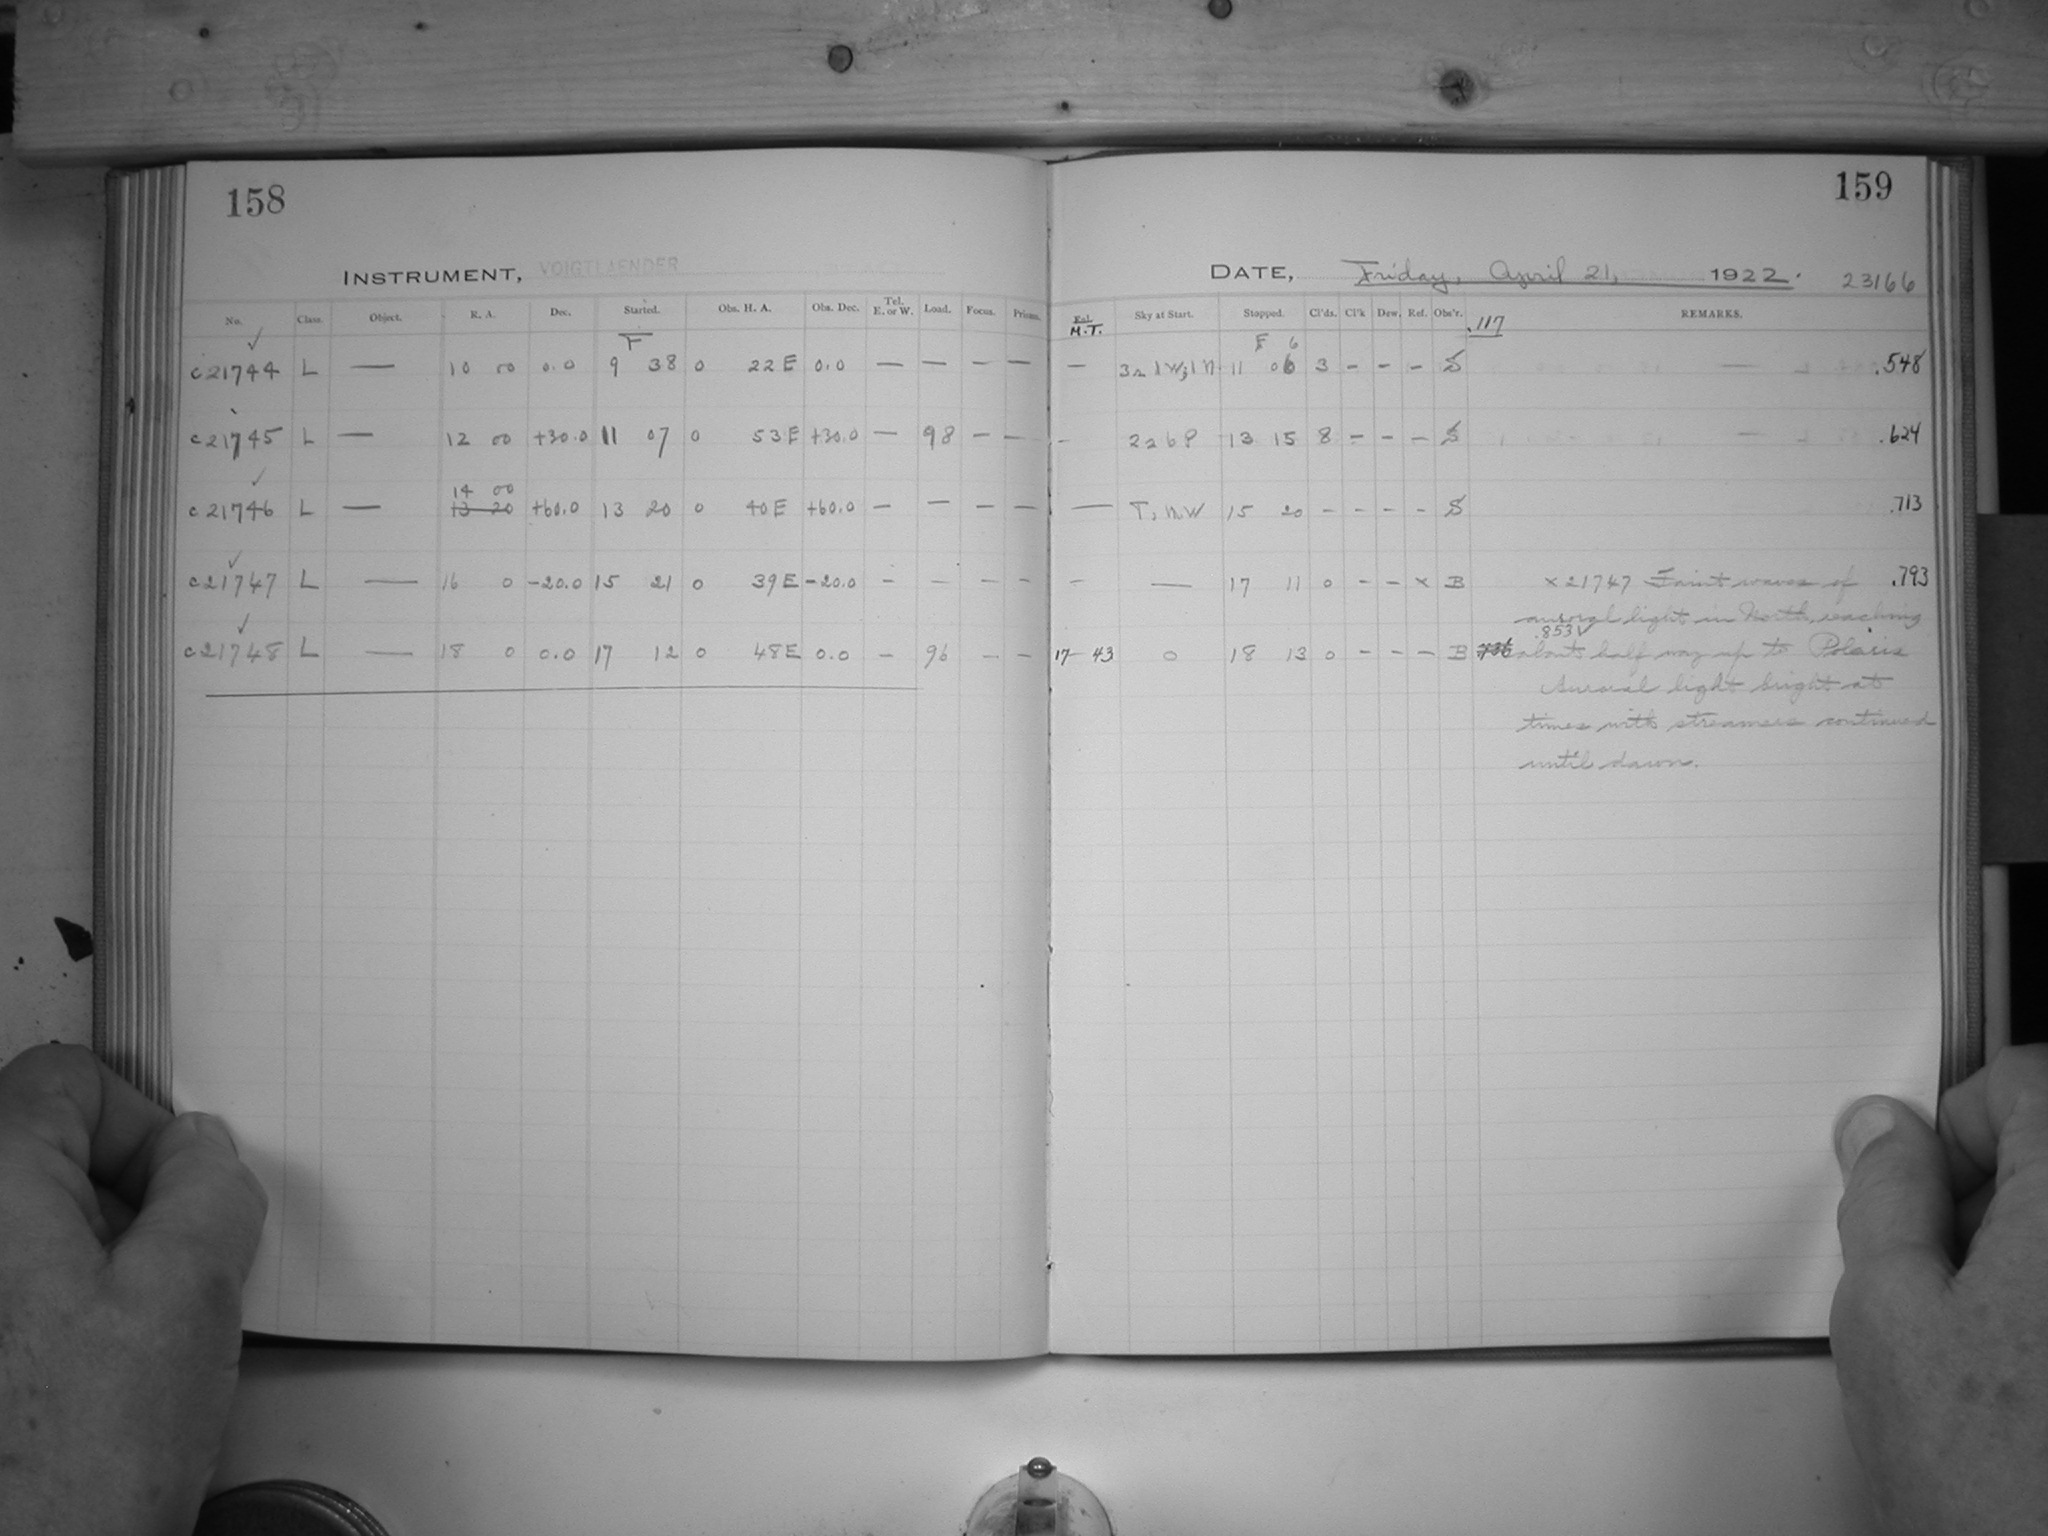 158
159
INSTRUMENT, VOIGTLAENDER
DATE, Friday, April 21, 1922. 23166
No. Class. Object. R. A. Dec. Started. Obs. H. A. Obs. Dec. Tel. E. or W. Load. Focus. Prisms. M.T. Sky at Start. Stopped. Cl'ds. Cl'k Dew. Ref. Obs'r. .117 REMARKS.
F F 6
c21744 L — 10 00 0.0 9 38 0 22 E 0.0 — — — — — 11 06 3 - - - S .548
c21745 L — 12 00 +30.0 11 07 0 53 E +30.0 — 98 — — - 13 15 8 - - - S .624
14 00
c21746 L — 13 20 +60.0 13 20 0 40 E +60.0 — — — — — 15 20 - - - - S .713
c21747 L — 16 0 -20.0 15 21 0 39 E -20.0 - - - - - — 17 11 0 - - x B x 21747 Faint waves of .793
auroral light in North, reaching
.853
c21748 L — 18 0 0.0 17 12 0 48 E 0.0 - 96 - - 17 43 0 18 13 0 - - - B about half way up to Polaris
Auroral light bright at
times with streamers continued
until dawn.